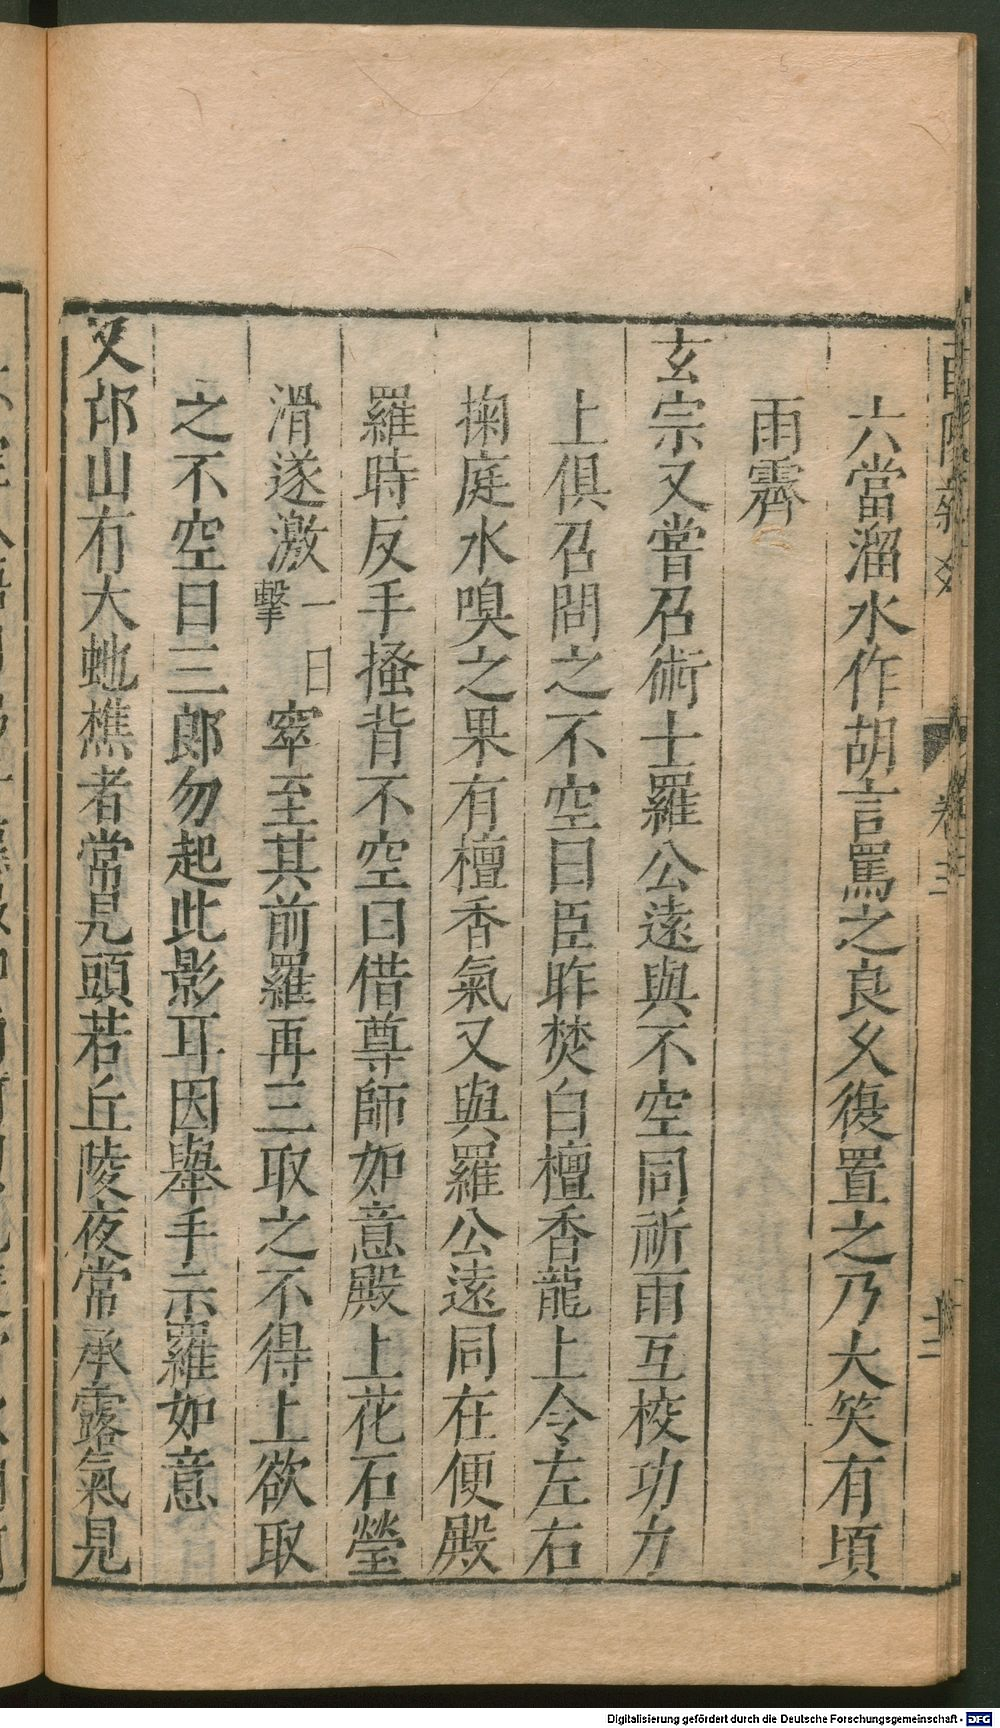 六當溜水作胡言罵之良久復置之乃大笑有頃
雨霽
玄宗又嘗召術士羅公遠與不空同祈雨互校功力
上俱召問之不空曰臣昨焚白檀香龍上令左右
掬庭水嗅之果有檀香氣又與羅公遠同在便殿
羅時反手搔背不空曰借尊師如意殿上花石瑩
滑遂激一日擊窣至其前羅再三取之不得上欲取
之不空曰三郎勿起此影耳因舉手示羅如意
又邙山有大虵樵者常見頭若丘陵夜常承露氣見
卷三
Digitalisierung gefördert durch die Deutsche Forschungsgemeinschaft - DFG